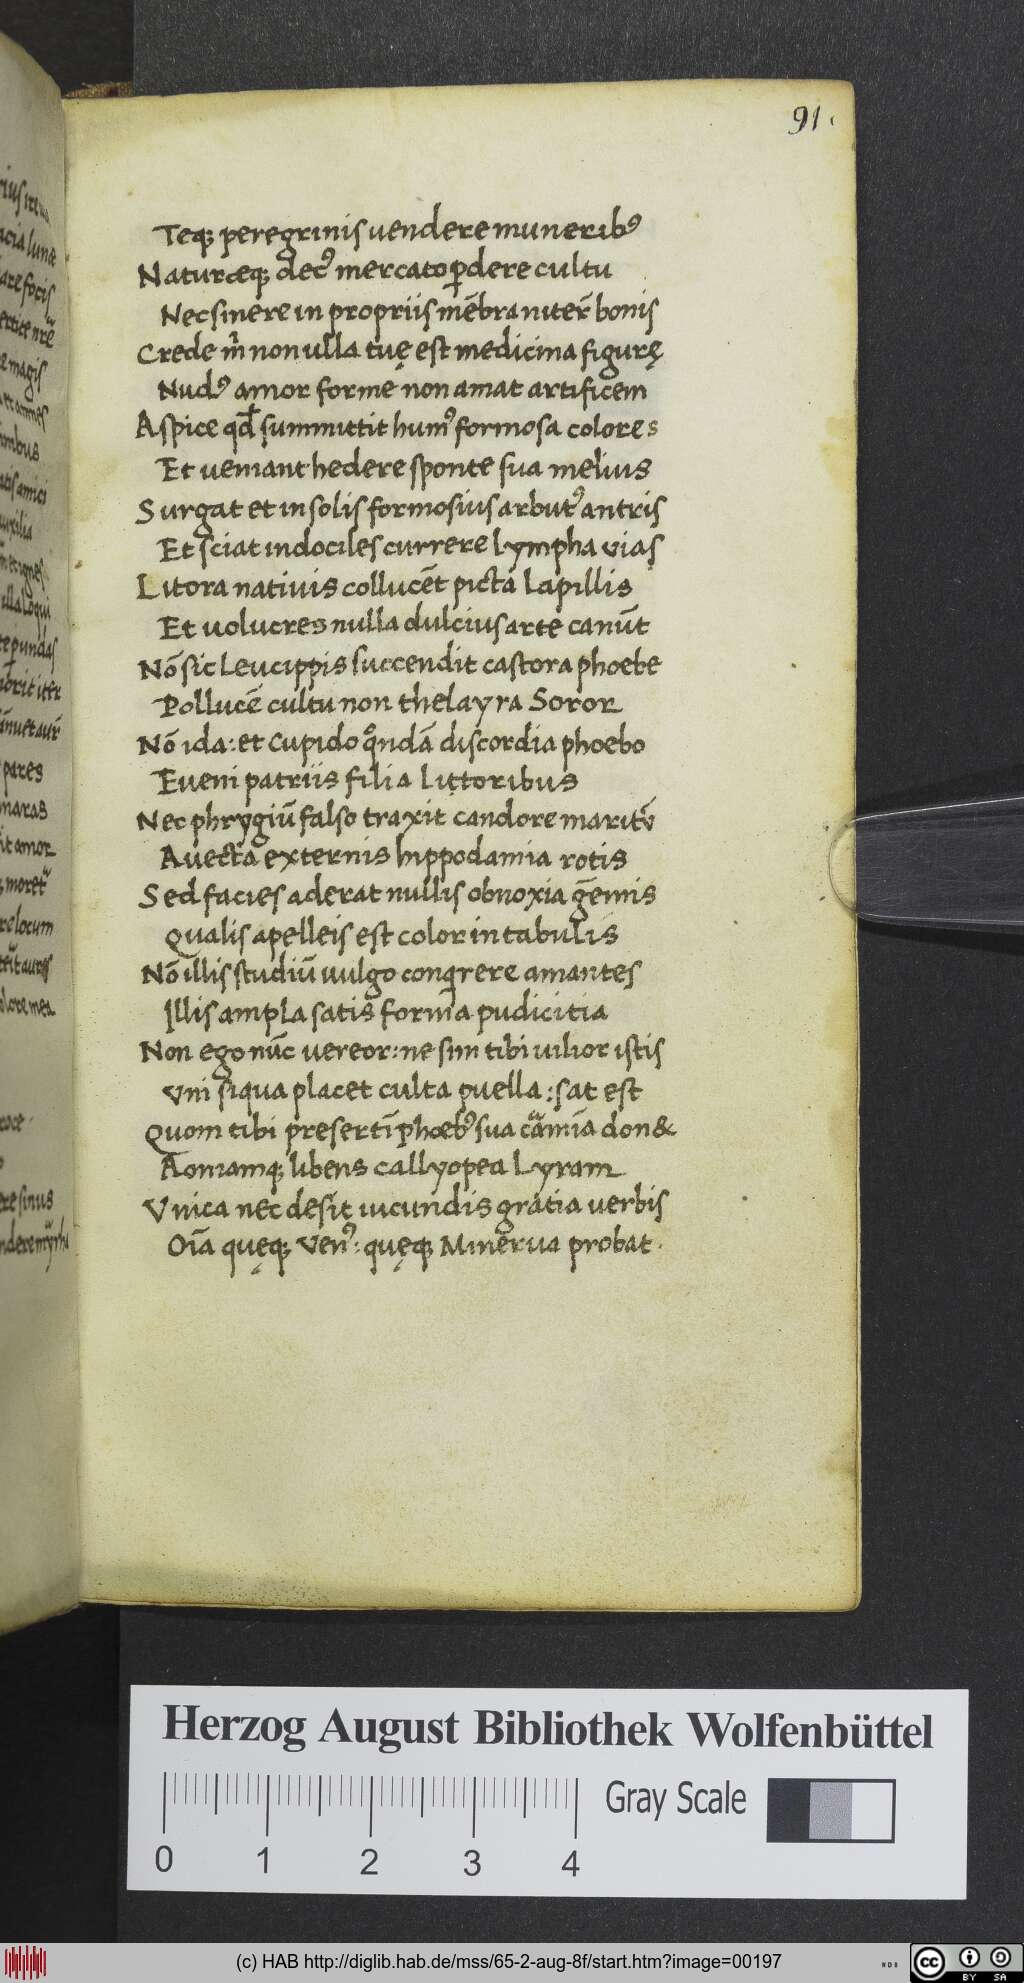 91.
Teq; peregrinis uendere muneribꝰ
Naturæq; decꝰ mercato ꝑdere cultu
Nec sinere in propriis mẽbra niter̃ bonis
Crede m̃ non ulla tuę est medicina figurę
Nudꝰ amor forme non amat artificem
Aspice qđ summittit humꝰ formosa colores
Et ueniant hedere sponte sua melius
Surgat et in solis formosius arbutꝰ antris
Et sciat indociles currere lympha vias
Litora natiuis collucẽt picta lapillis
Et uolucres nulla dulcius arte canũt
Nõ sic Leucippis succendit castora phoebe
Pollucẽ cultu non thelayra Soror
Nõ ida: et Cupido qͦndã discordia phoebo
Eueni patriis filia littoribus
Nec phrygiũ falso traxit candore maritũ
Auecta externis hippodamia rotis
Sed facies aderat nullis obnoxia gẽmis
Qualis apelleis est color in tabulis
Nõ illis studiũ uulgo conqrere amantes
Illis ampla satis forma pudicitia
Non ego nũc vereor: ne sim tibi uilior istis
Vni siqua placet culta puella: sat est
Quom tibi presertĩ phoebꝰ sua cãmĩa don&
Aoniamq; libens callyopea Lyram
Vnica nec desit iucundis gratia uerbis
Oĩa quęq; Venꝰ: quęq; Minerua probat.
Herzog August Bibliothek Wolfenbüttel
0 1 2 3 4
Gray Scale
(c) HAB http://diglib.hab.de/mss/65-2-aug-8f/start.htm?image=00197
cc BY SA